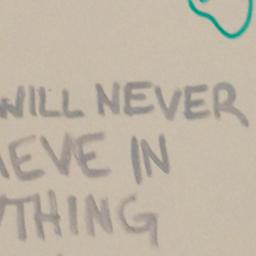 WILL NEVER
IEVE IN
YTHING